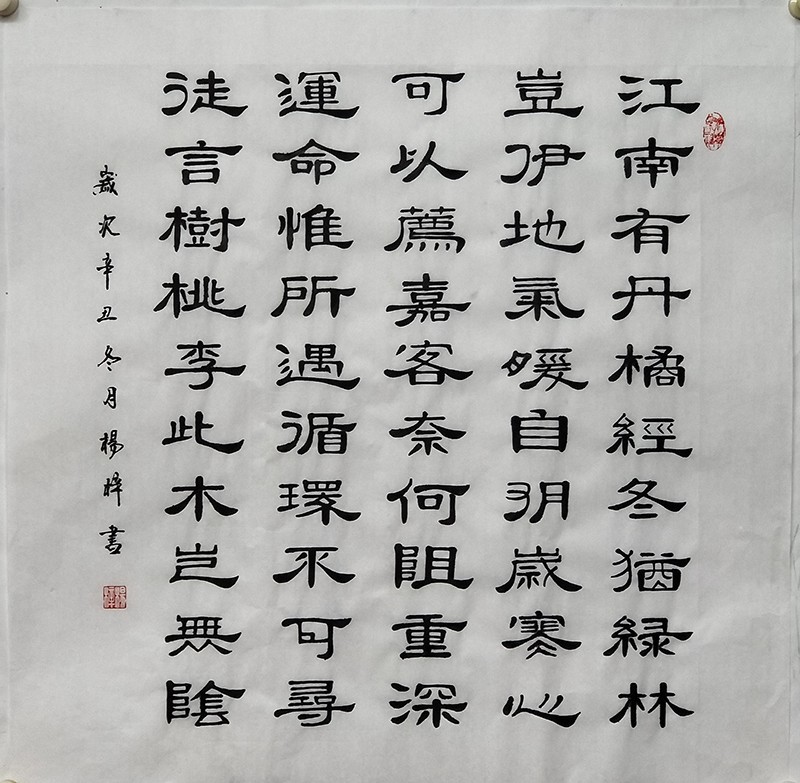 江南有丹橘經冬猶緑林
豈伊地氣暖自歲寒心
可以薦嘉客奈何阻重深
運命惟所遇循環不可尋
徒言樹桃李此木岂無陰
歲次辛丑冬月楊梓書